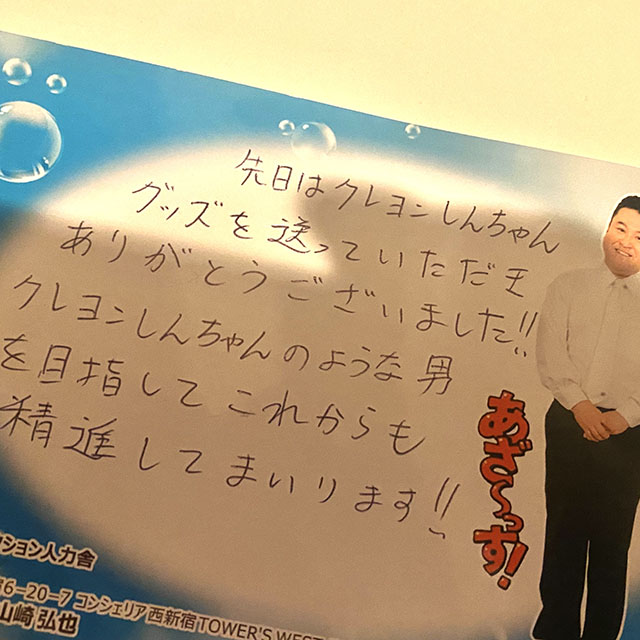 先日はクレヨンしんちゃん
グッズを送っていただき
ありがとうございました!!
クレヨンしんちゃんのような男
を目指してこれからも
精進してまいります!!
あざ〜っす!
ション人力舎
6-20-7 コンシェリア西新宿TOWER'S WEST
山崎 弘也